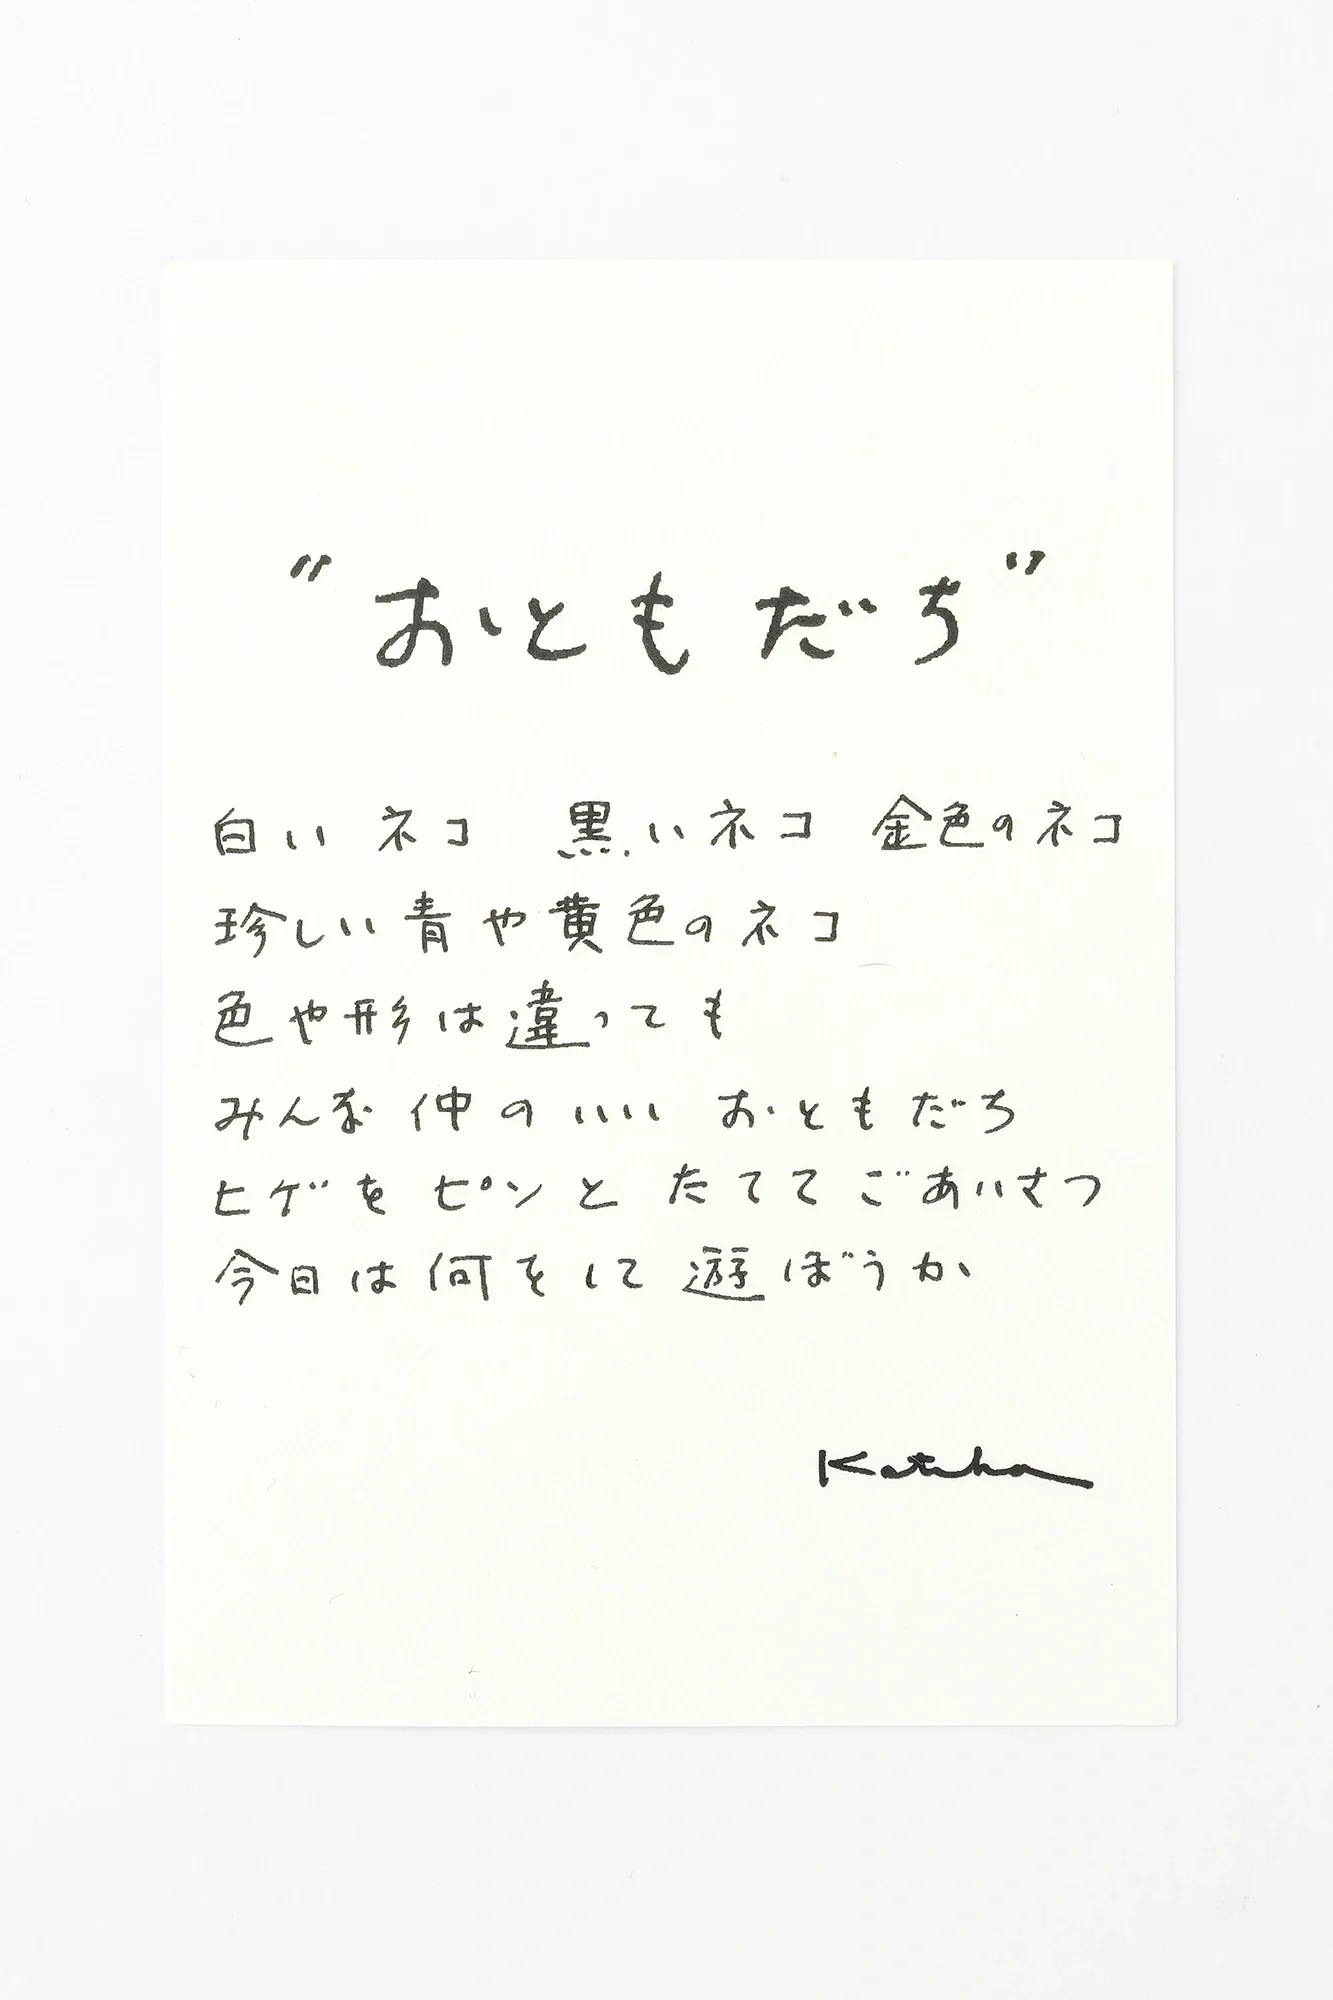 "おともだち"
白い ネコ 黒いネコ 金色のネコ
珍しい青や黄色のネコ
色や形は違っても
みんな仲のいい おともだち
ヒゲを ピンと たててごあいさつ
今日は何をして遊ぼうか